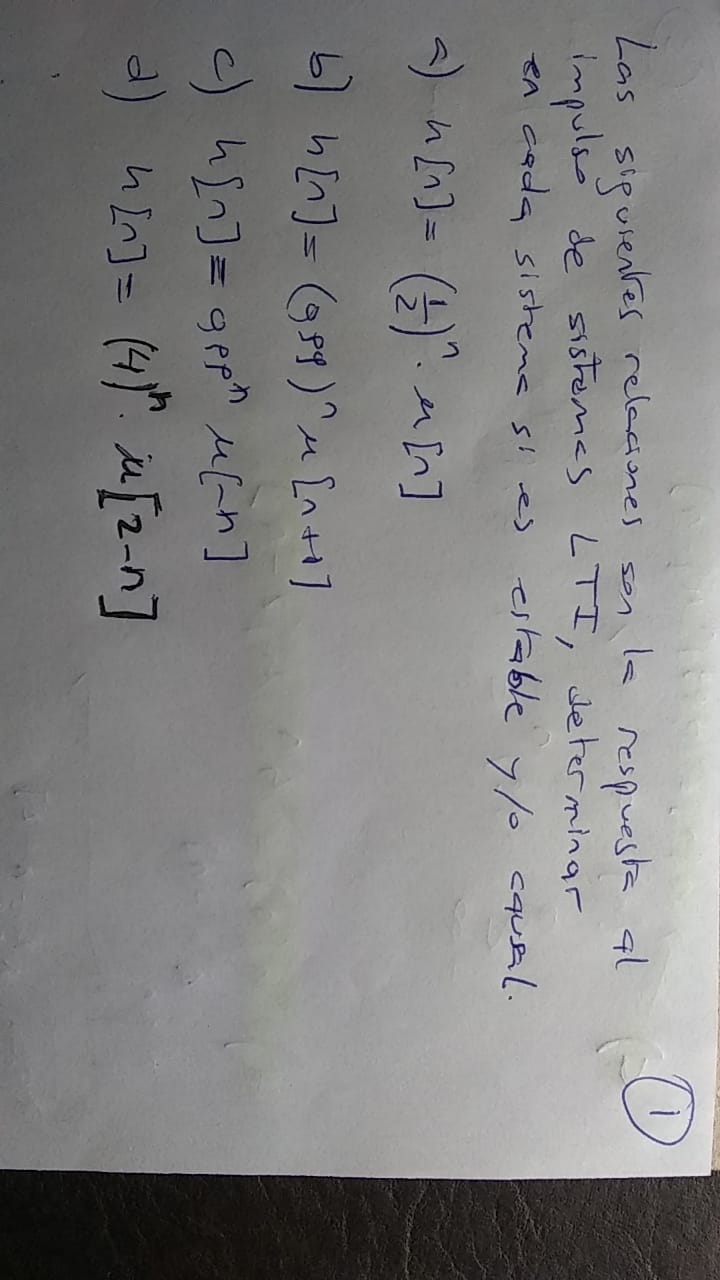 ①
Las siguientes relaciones son la respuesta al
impulso de sistemas LTI, determinar
en cada sistema si es estable y/o causal.
a) h[n] = (1/2)^n · μ[n]
b) h[n] = (0,99)^n μ[n+1]
c) h[n] = 0,99^n μ[-n]
d) h[n] = (4)^n · μ[2-n]